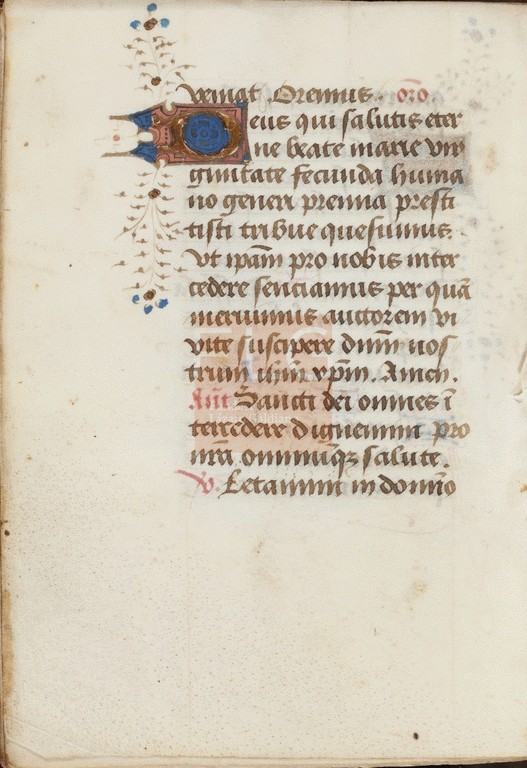 veniat. Oremus. oro
Deus qui salutis eter
ne beate marie vir
ginitate fecunda huma
no generi premia presti
tisti tribue quesumus.
Vt ipam pro nobis inter
cedere senciamus per quā
meruimus auctorem vi
vite suscipere dnm nos
trum ihm xpm. Amen.
Añ Sancti dei omnes ī
tercedere dignemini pro
nrā omniumqꝫ salute.
V. Letamini in domīo